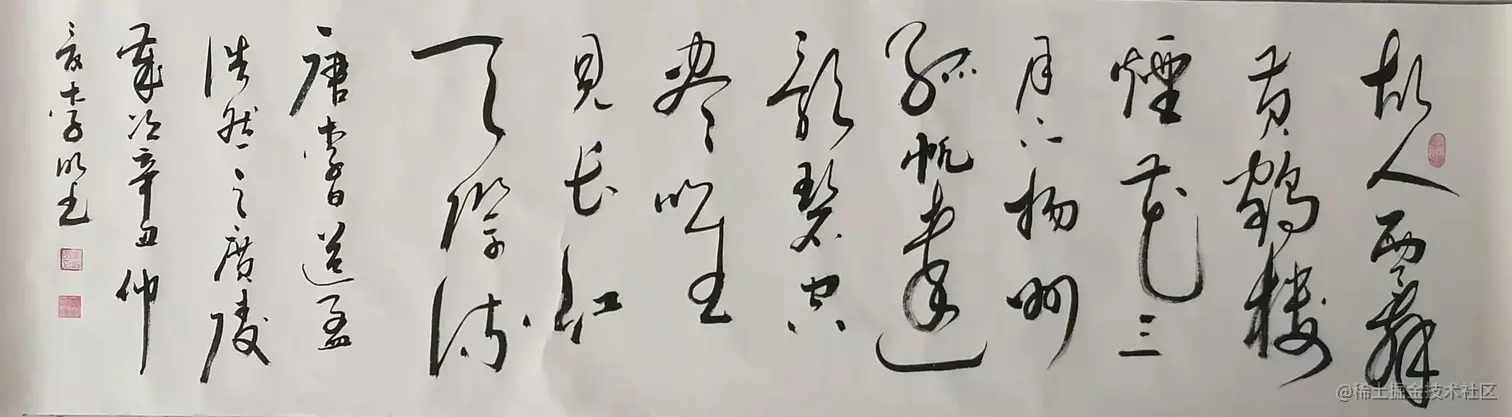 故人西辞
黄鹤楼
煙花三
月下揚州
孤帆遠
影碧空
尽唯
見長江
天際流
唐李白送孟
浩然之廣陵
歲次辛丑仲
夏李
@稀土掘金技术社区